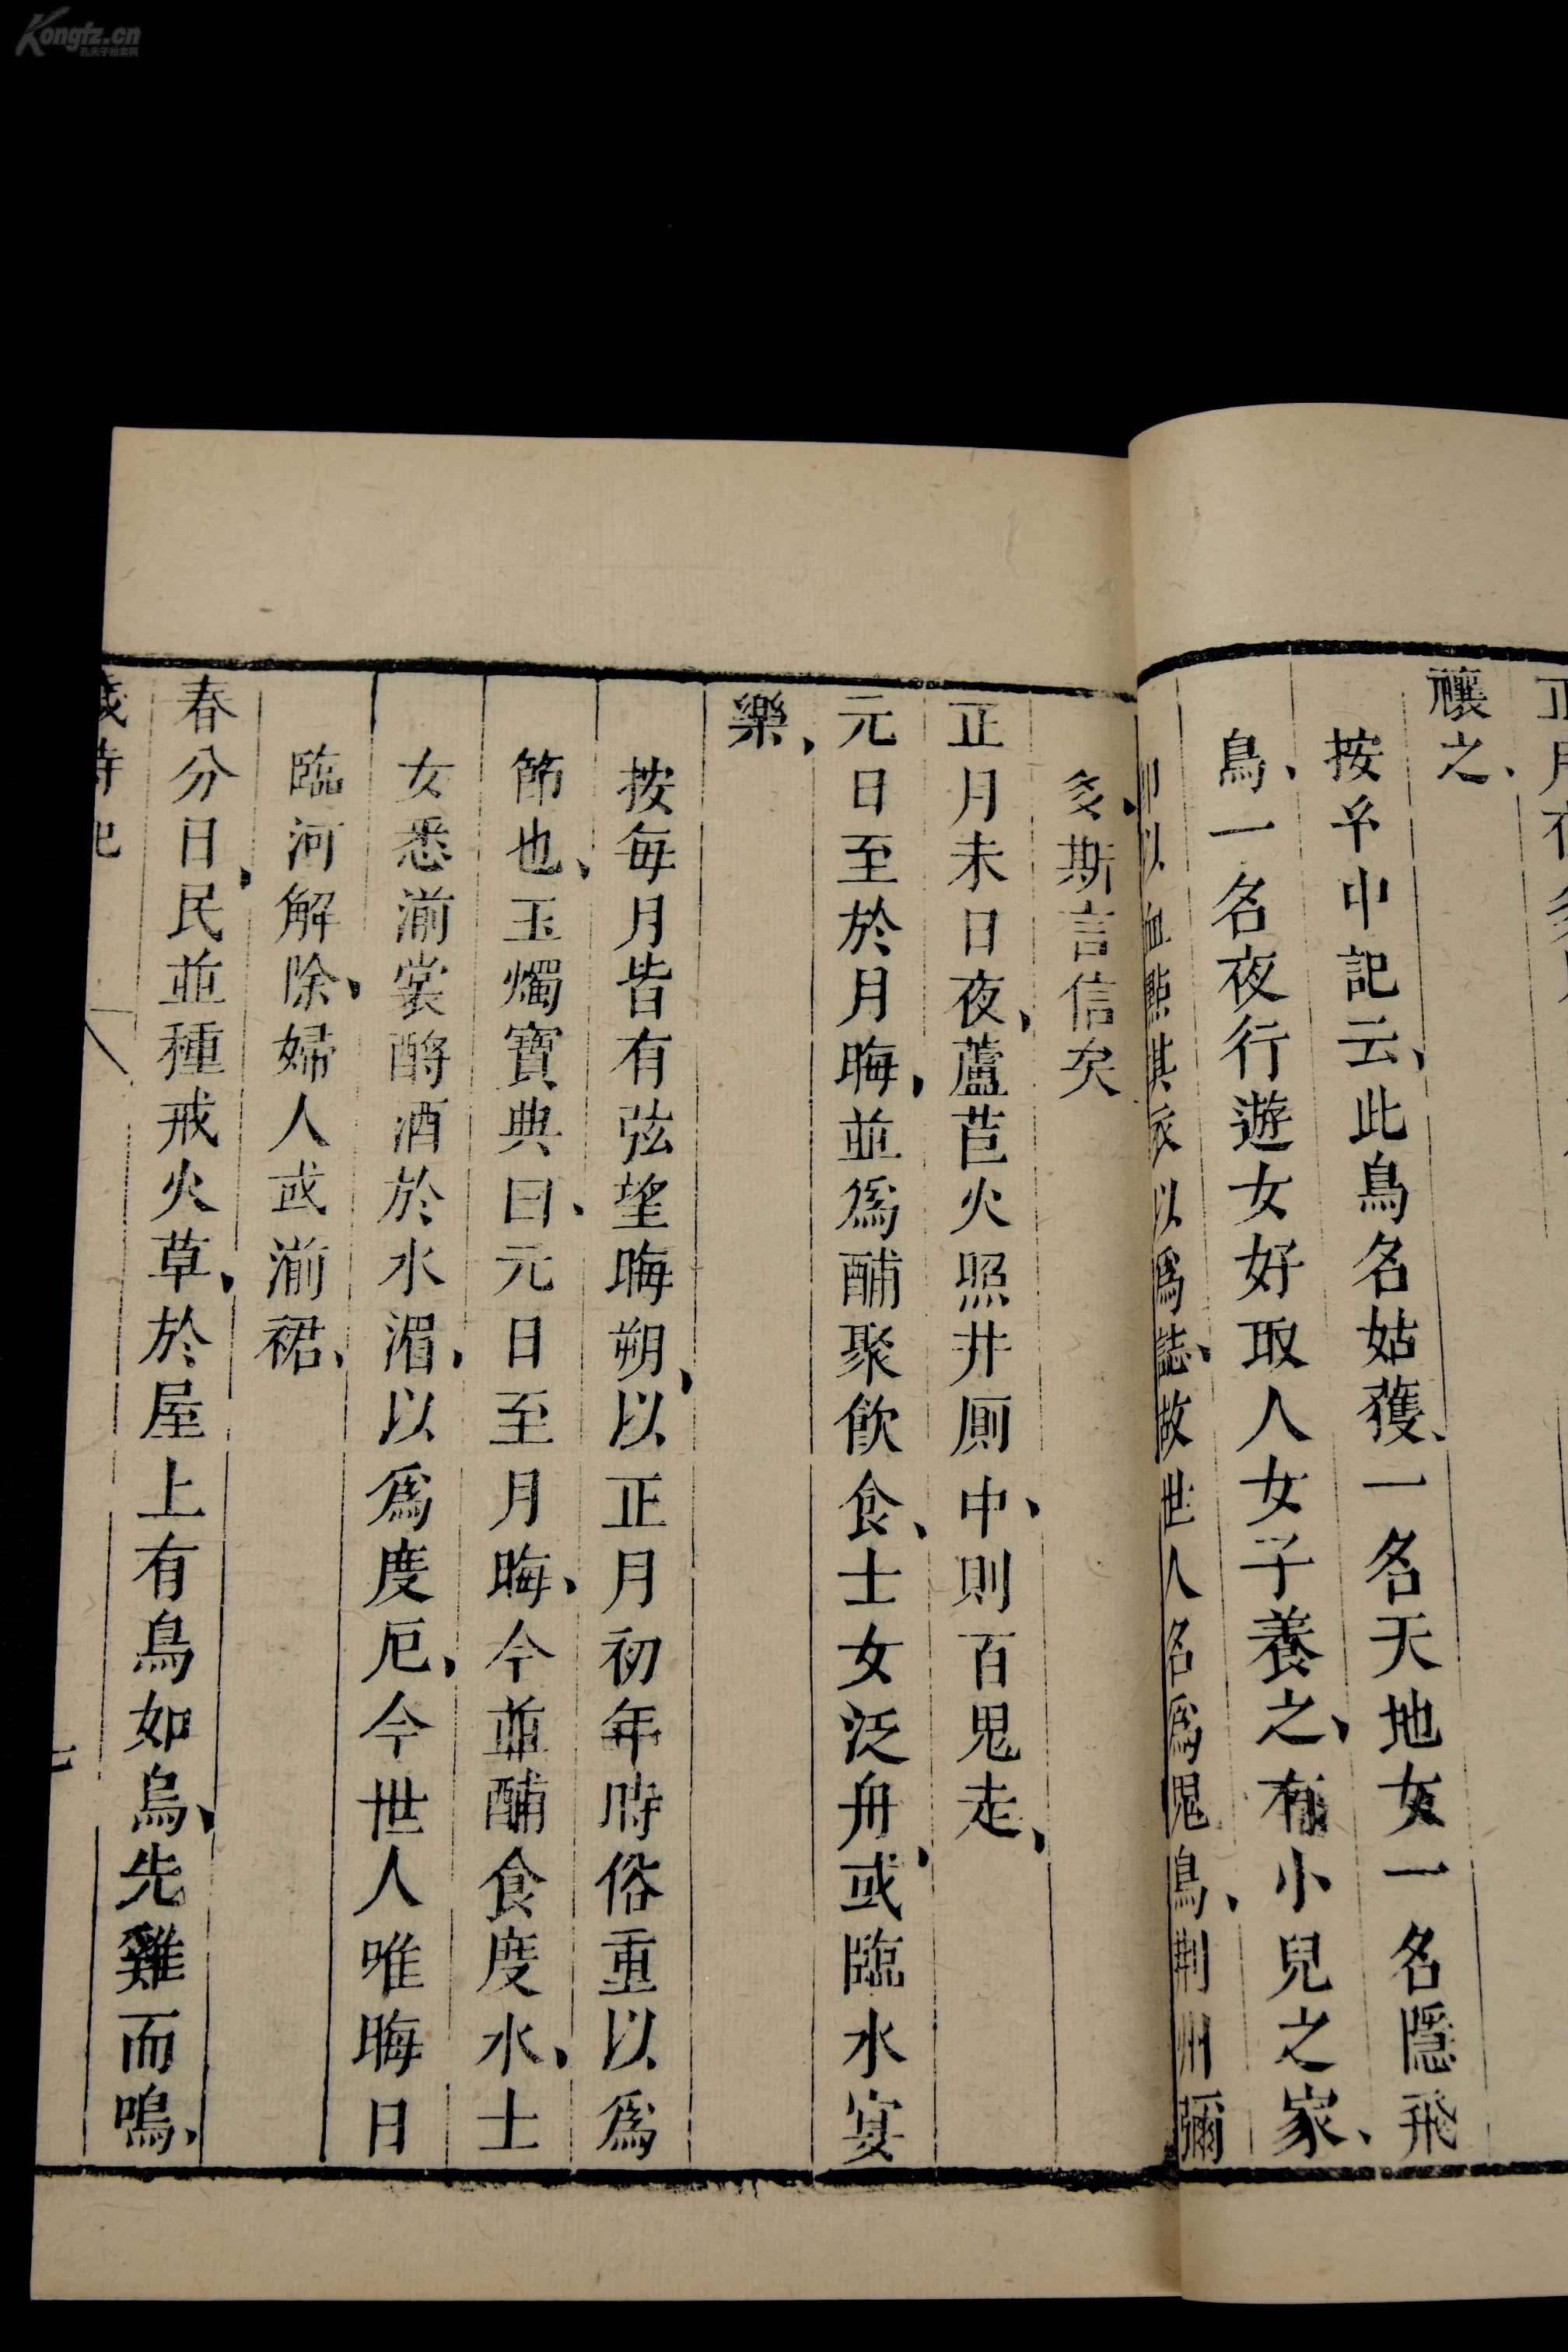 禳之、
按𤣥中記云、此鳥名姑獲、一名天地女一名隱飛
鳥、一名夜行遊女好取人女子養之、有小兒之家、
卽以血㸃其衣以爲誌、故世人名爲鬼鳥、荆州彌
多、斯言信矣
正月未日夜、蘆苣火照井厠中、則百鬼走、
元日至於月晦、並爲酺聚飲食、士女泛舟、或臨水宴
樂、
按每月皆有弦望晦朔、以正月初年時俗重以爲
節也、玉燭寶典曰、元日至月晦、今並酺食度水、士
女悉湔裳酹酒於水湄、以爲度厄、今世人唯晦日
臨河解除、婦人或湔裙、
春分日、民並種戒火草、於屋上有鳥如烏、先雞而鳴、
歲時記
七
Kongfz.cn
孔夫子旧书网